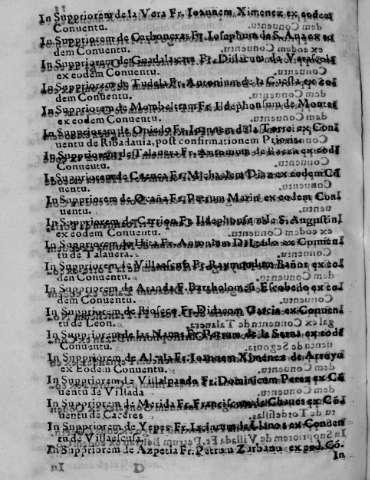 In Suppriorem de la Vera Fr. Ioannem Ximenez ex eodem
Conuentu.
In Suppriorem de Carboneras Fr. Iosephum de S. Ana ex eo
dem Conuentu.
In Suppriorem de Guadalaxara Fr. Didacum de
ex eodem Conuentu.
In Suppriorem de Tudela Fr. Antonium de la Cuesta ex eo
dem Conuentu.
In Suppriorem de Mombeltran Fr. Ildephonsum de Montes
ex eodem Conuentu.
In Suppriorem de Oviedo Fr. de la Torre, ex Con
uentu de Ribadauia, post confirmationem Prioris.
In Suppriorem de Talauera Fr. Antonium de Baeza ex eodem
Conuentu.
In Suppriorem de Cuenca Fr. Michaelem Diaz ex eodem Cō
uentu.
In Suppriorem de Ocaña Fr. Petrum Marin ex eodem Con
uentu.
In Suppriorem de Carrion Fr. Ildephonsum de S. Augustin
ex eodem Conuentu.
In Suppriorem de Hita Fr. Antonium Delgado ex Conuen
tu de Talauera.
In Suppriorem de Villaescusa Fr. Raymundum Baños ex eo
dem Conuentu.
In Suppriorem de Aranda F. Bartholomeū Escobedo ex eo
dem Conuentu.
In Suppriorem de Rioseco Fr. Didacum Garcia ex Conuen
tu de Leon.
In Suppriorem de las Naues Fr. Petrum de la Serna ex eodē
Conuentu.
In Suppriorem de Alcala Fr. Ioannem Ximenez de Arroyo
ex Eodem Conuentu.
In Suppriorem de Villalpando Fr. Dominicum Perez ex Cō
uentu de Villada
In Suppriorem de Merida Fr. Franciscum de Chaues ex Cō
uentu de Caceres
In Suppriorem de Yepes Fr. de Llanos ex Conuen
tu de Villaescusa.
In Suppriorem de Azpetia Fr. Petrum Zurbano ex eod. Cō.
In